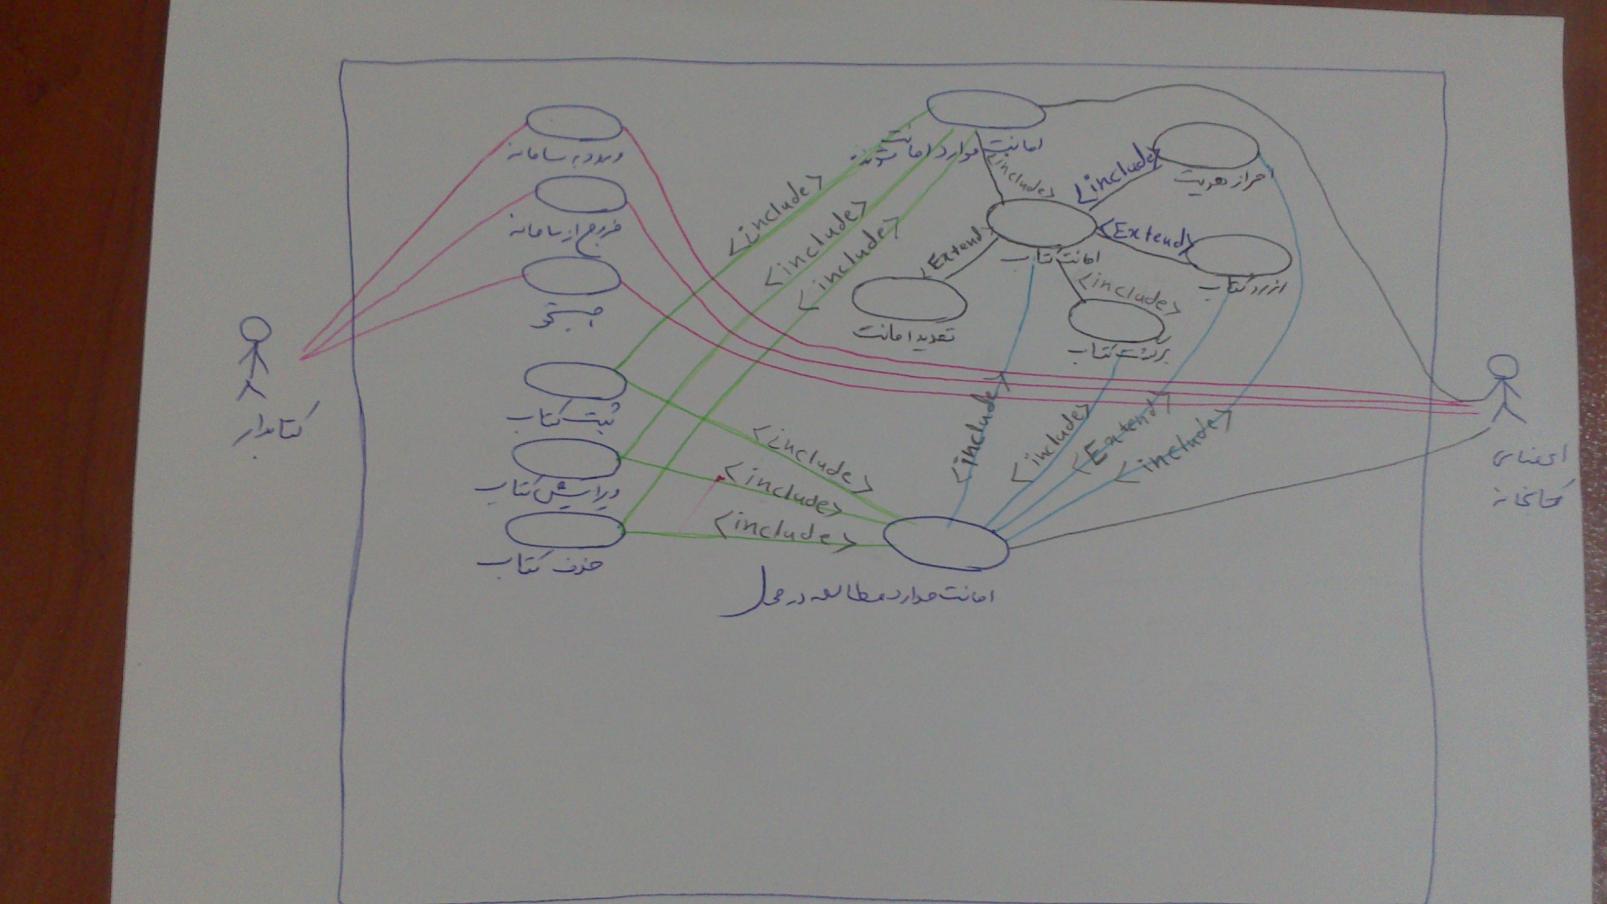 ورود به سامانه
خروج از سامانه
جستجو
ثبت کتاب
ویرایش کتاب
حذف کتاب
کتابدار
امانت موارد امانت
احراز هویت
امانت کتاب
رزرو کتاب
تمدید امانت
برگشت کتاب
امانت موارد مطالعه در محل
اعضای
کتابخانه
<include>
<include>
<include>
<include>
<include>
<Extend>
<Extend>
<include>
<include>
<include>
<include>
<include>
<include>
<Extend>
<include>